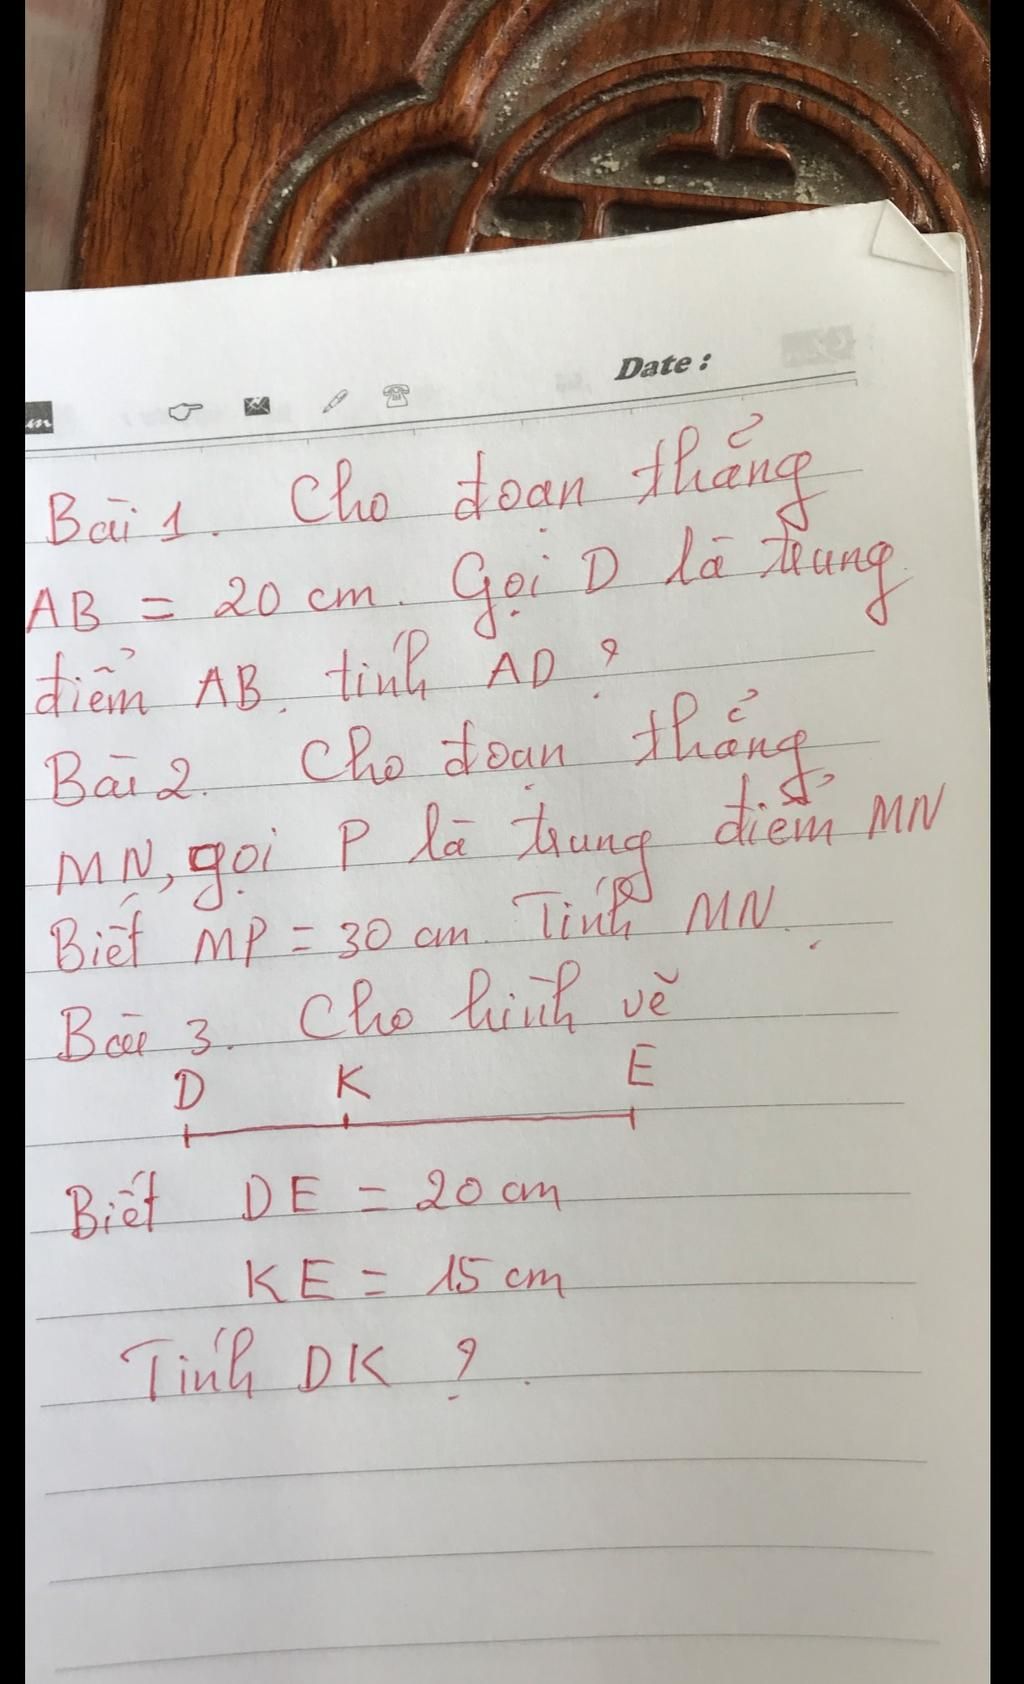 Date :
Bài 1. Cho đoạn thẳng
AB = 20 cm. Gọi D là trung
điểm AB. tính AD ?
Bài 2. Cho đoạn thẳng
MN, gọi P là trung điểm MN
Biết MP = 30 cm. Tính MN.
Bài 3. Cho hình vẽ
D K E
Biết DE = 20 cm
KE = 15 cm
Tính DK ?